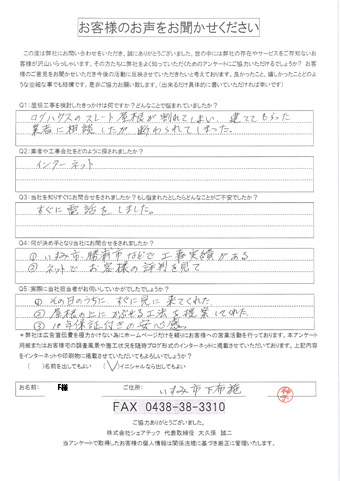 お客様のお声をお聞かせください
この度は弊社にお問い合わせをいただき、誠にありがとうございました。世の中には弊社の存在やサービスをご存知ないお
客様が沢山いらっしゃいます。その方たちに弊社をよく知っていただくためのアンケートにご協力いただけるでしょうか?お客
様のご意見をお聞かせいただき今後の活動に反映させていただきたいと考えております。良かったこと、嬉しかったことどのよ
うな些細な事でも結構です。是非ご協力お願い致します。(出来るだけ具体的に書いていただければ幸いです)
Q1:屋根工事を検討したきっかけは何ですか?どんなことで悩まれていましたか?
ログハウスのスレート屋根が割れてしまい、建ててもらった
業者に相談したが断わられてしまった。
Q2:業者や工事会社をどのように探されましたか?
インターネット
Q3:当社を知りすぐにお問合せをされましたか?もし悩まれたとしたらどんなことがご不安でしたか?
すぐに電話をしました。
Q4:何が決め手となり当社にお問合せをされましたか?
① いすみ市、勝浦市などで工事実績がある
② ネットでお客様の評判を見て
Q5:実際に当社担当者がお伺いしていかがでしたでしょうか?
① その日のうちに、すぐに見に来てくれた
② 屋根の上にかぶせる工法を提案してくれた
③ 10年保証付きの安心感。
*弊社は広告宣伝費を極力かけない為にホームページだけを頼りにお客様への営業活動を行っております。本アンケート
用紙またはお客様宅の調査風景や施工状況を随時ブログ形式のインターネットに掲載させていただいております。上記内容
をインターネットや印刷物に掲載させていただいてもよろしいでしょうか?
( )名前を出してもよい (✓)イニシャルなら出してもよい
お名前: F様 ご住所: いすみ市下布施
FAX 0438-38-3310
ご協力ありがとうございました。
株式会社シェアテック 代表取締役 大久保 誠二
当アンケートで取得したお客様の個人情報は関係法規に基づき厳正に管理いたします。